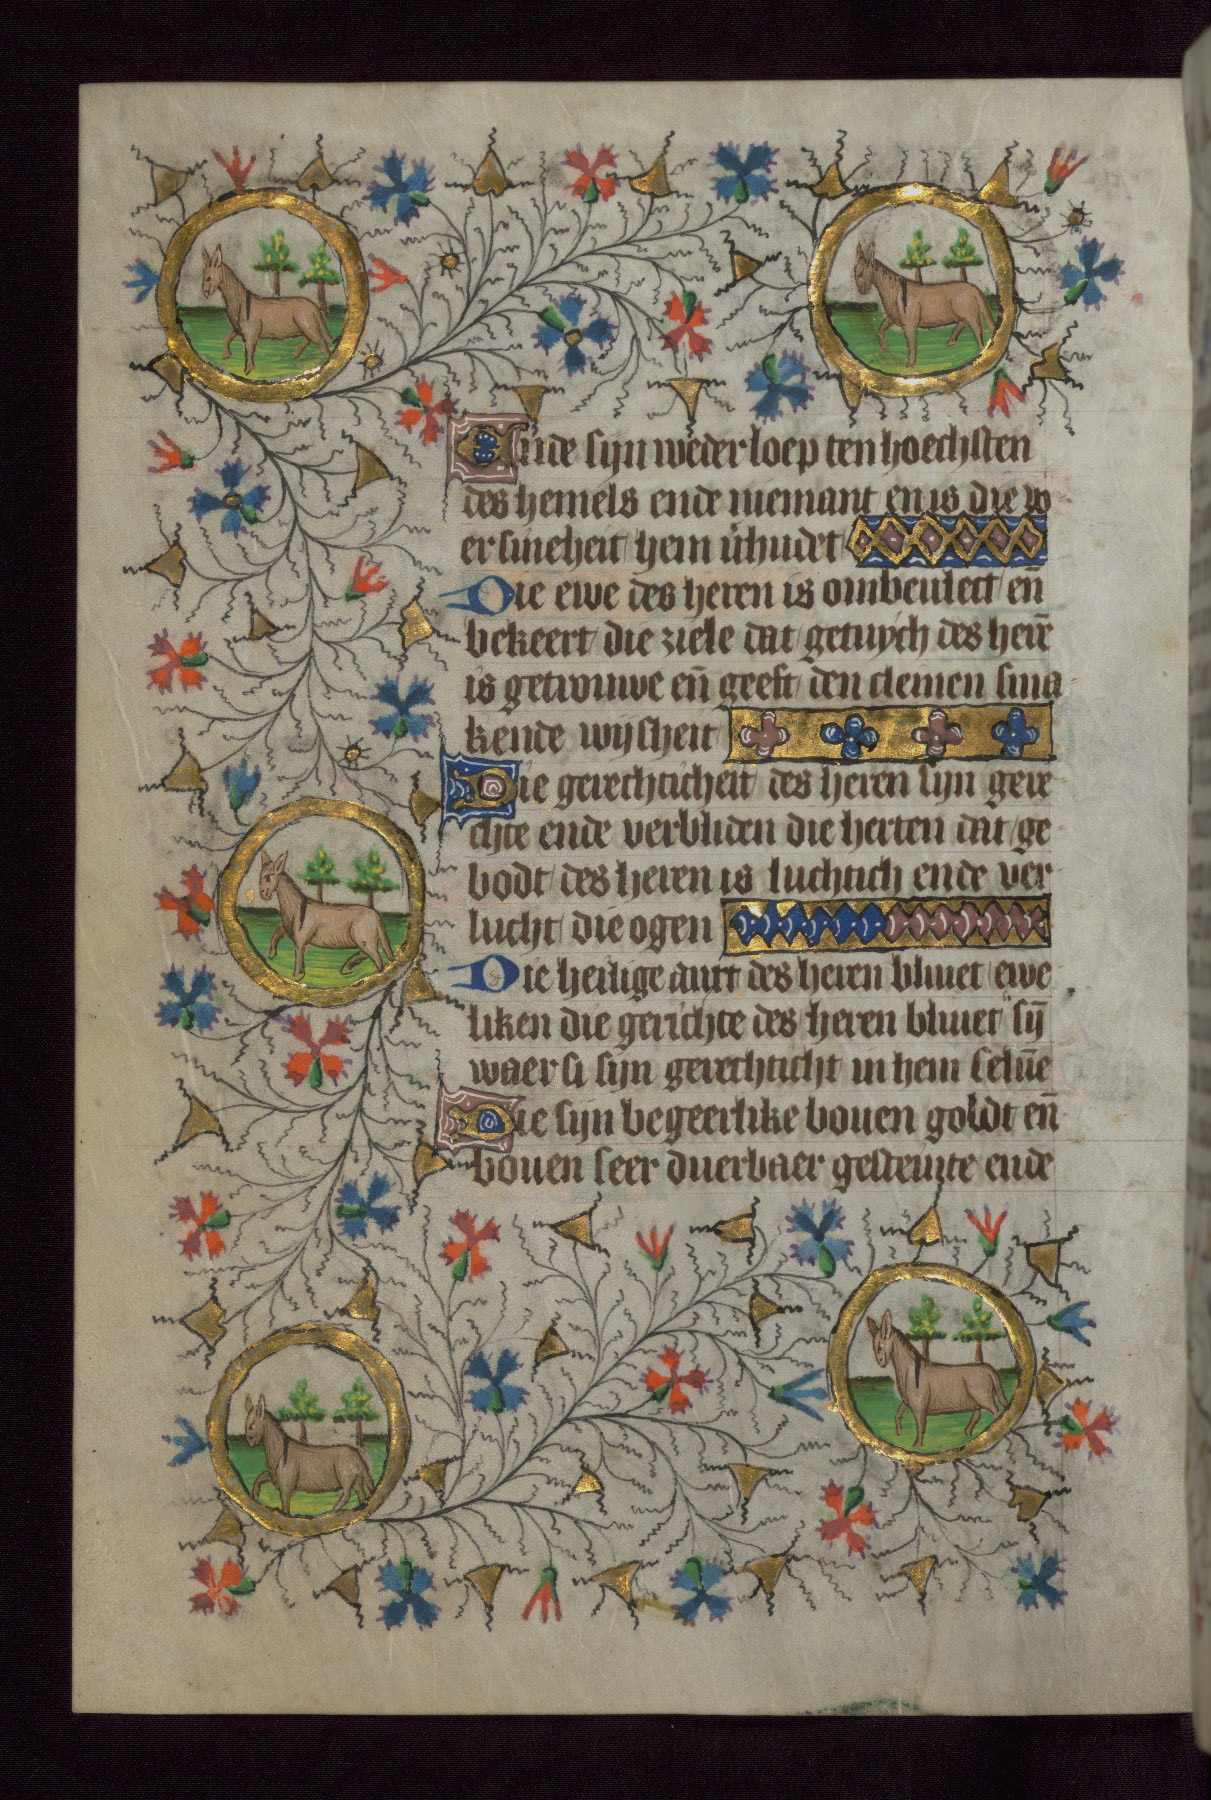 Ende sijn weder loep ten hoechsten
des hemels ende niemant en is die w
er sineheit hem v̄hudet
Die ewe des heren is ombeulect en̄
bekeert die ziele dat getuych des her̄e
is getrouwe en̄ geeft den cleinen sina
kende wijsheit
Die gerechticheit des heren sijn gere
chte ende verbliden die herten dat ge
bodt des heren is luchtich ende ver
lucht die ogen
Die heilige anxt des heren bliuet ewe
liken die gerichte des heren bliuet sȳ
waer si sijn gerechticht in hem selūe
Die sijn begeerlike bouen goldt en̄
bouen seer duerbaer gesteinte ende